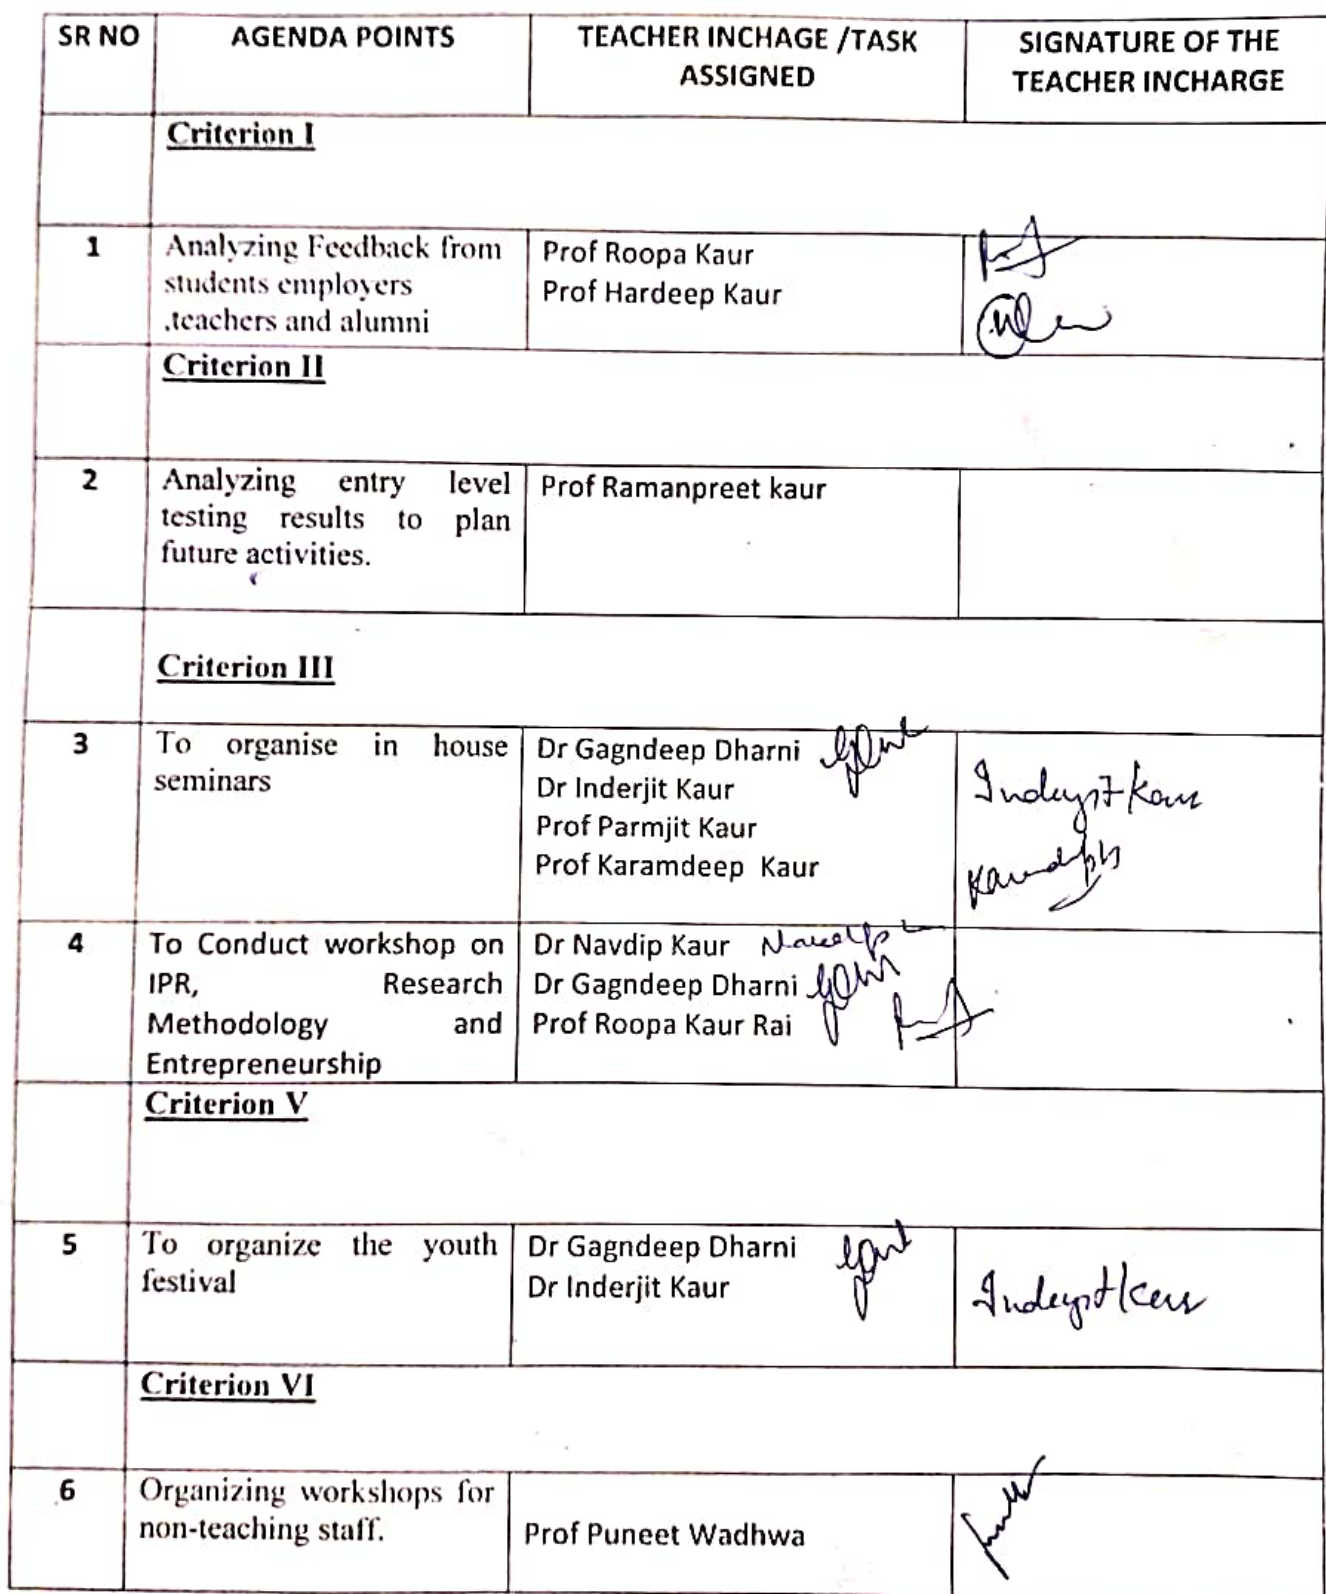 SR NO
AGENDA POINTS
TEACHER INCHAGE /TASK
ASSIGNED
SIGNATURE OF THE
TEACHER INCHARGE
Criterion I
1
Analyzing Feedback from
students employers
,teachers and alumni
Prof Roopa Kaur
Prof Hardeep Kaur
Criterion II
2
Analyzing entry level
testing results to plan
future activities.
Prof Ramanpreet kaur
Criterion III
3
To organise in house
seminars
Dr Gagndeep Dharni
Dr Inderjit Kaur
Prof Parmjit Kaur
Prof Karamdeep Kaur
Inderjit Kaur
4
To Conduct workshop on
IPR, Research
Methodology and
Entrepreneurship
Dr Navdip Kaur
Dr Gagndeep Dharni
Prof Roopa Kaur Rai
Criterion V
5
To organize the youth
festival
Dr Gagndeep Dharni
Dr Inderjit Kaur
Inderjit Kaur
Criterion VI
6
Organizing workshops for
non-teaching staff.
Prof Puneet Wadhwa